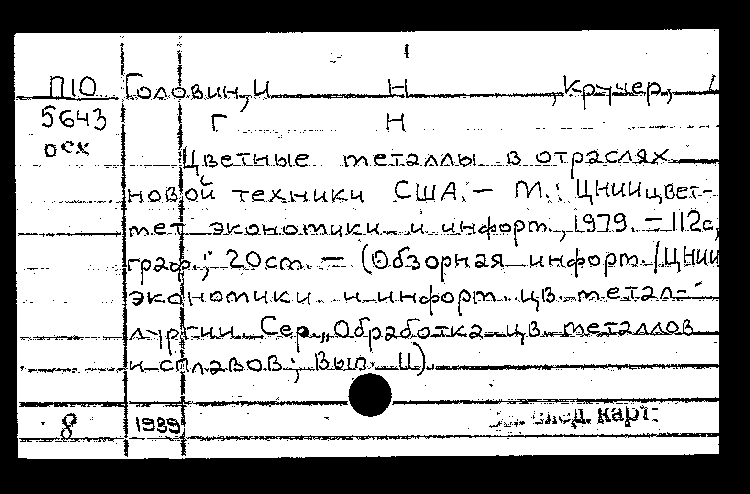 1
П10 Головин, И Н , Кручер, 
5643 Г Н
осх
Цветные металлы в отраслях
новой техники США. – М.: ЦНИИцвет-
мет экономики и информ., 1979. – 112с,
граф.; 20см. – (Обзорная информ. /ЦНИИ
экономики и информ. цв. метал-
лургии. Сер. „Обработка цв. металлов
и сплавов; Вып. 11).
8 1989 след. карт.